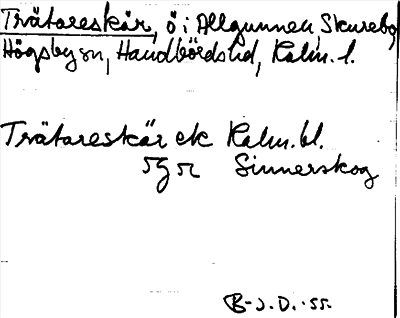 Trätareskär, ö i Allgunnen, Skurebo,
Högsby sn, Handbörds hd, Kalm. l.
Trätareskär ek Kalm. bl.
5g 52 Sinnerskog
B-J. D. -55.